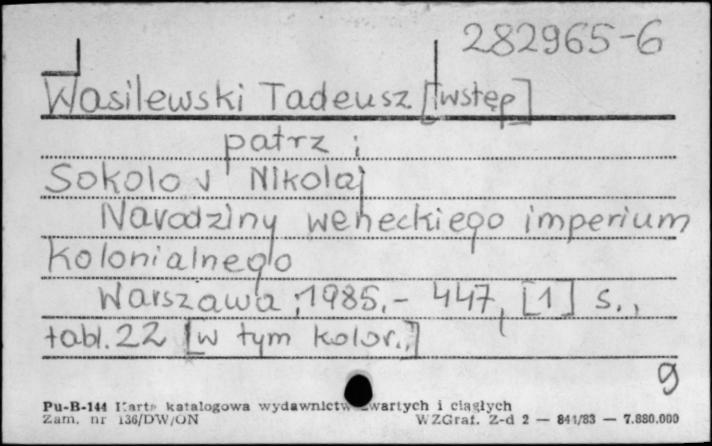 282965-6
Wasilewski Tadeusz [wstęp]
patrz :
Sokolov Nikolaj
Narodziny weneckiego imperium
kolonialnego
Warszawa ; 1985.- 447, [1] s.,
tabl. 22 [w tym kolor.]
9
Pu-B-144 Karta katalogowa wydawnictw zwartych i ciągłych
Zam. nr 136/DW/ON WZGraf. Z-d 2 — 841/83 — 7.880.000